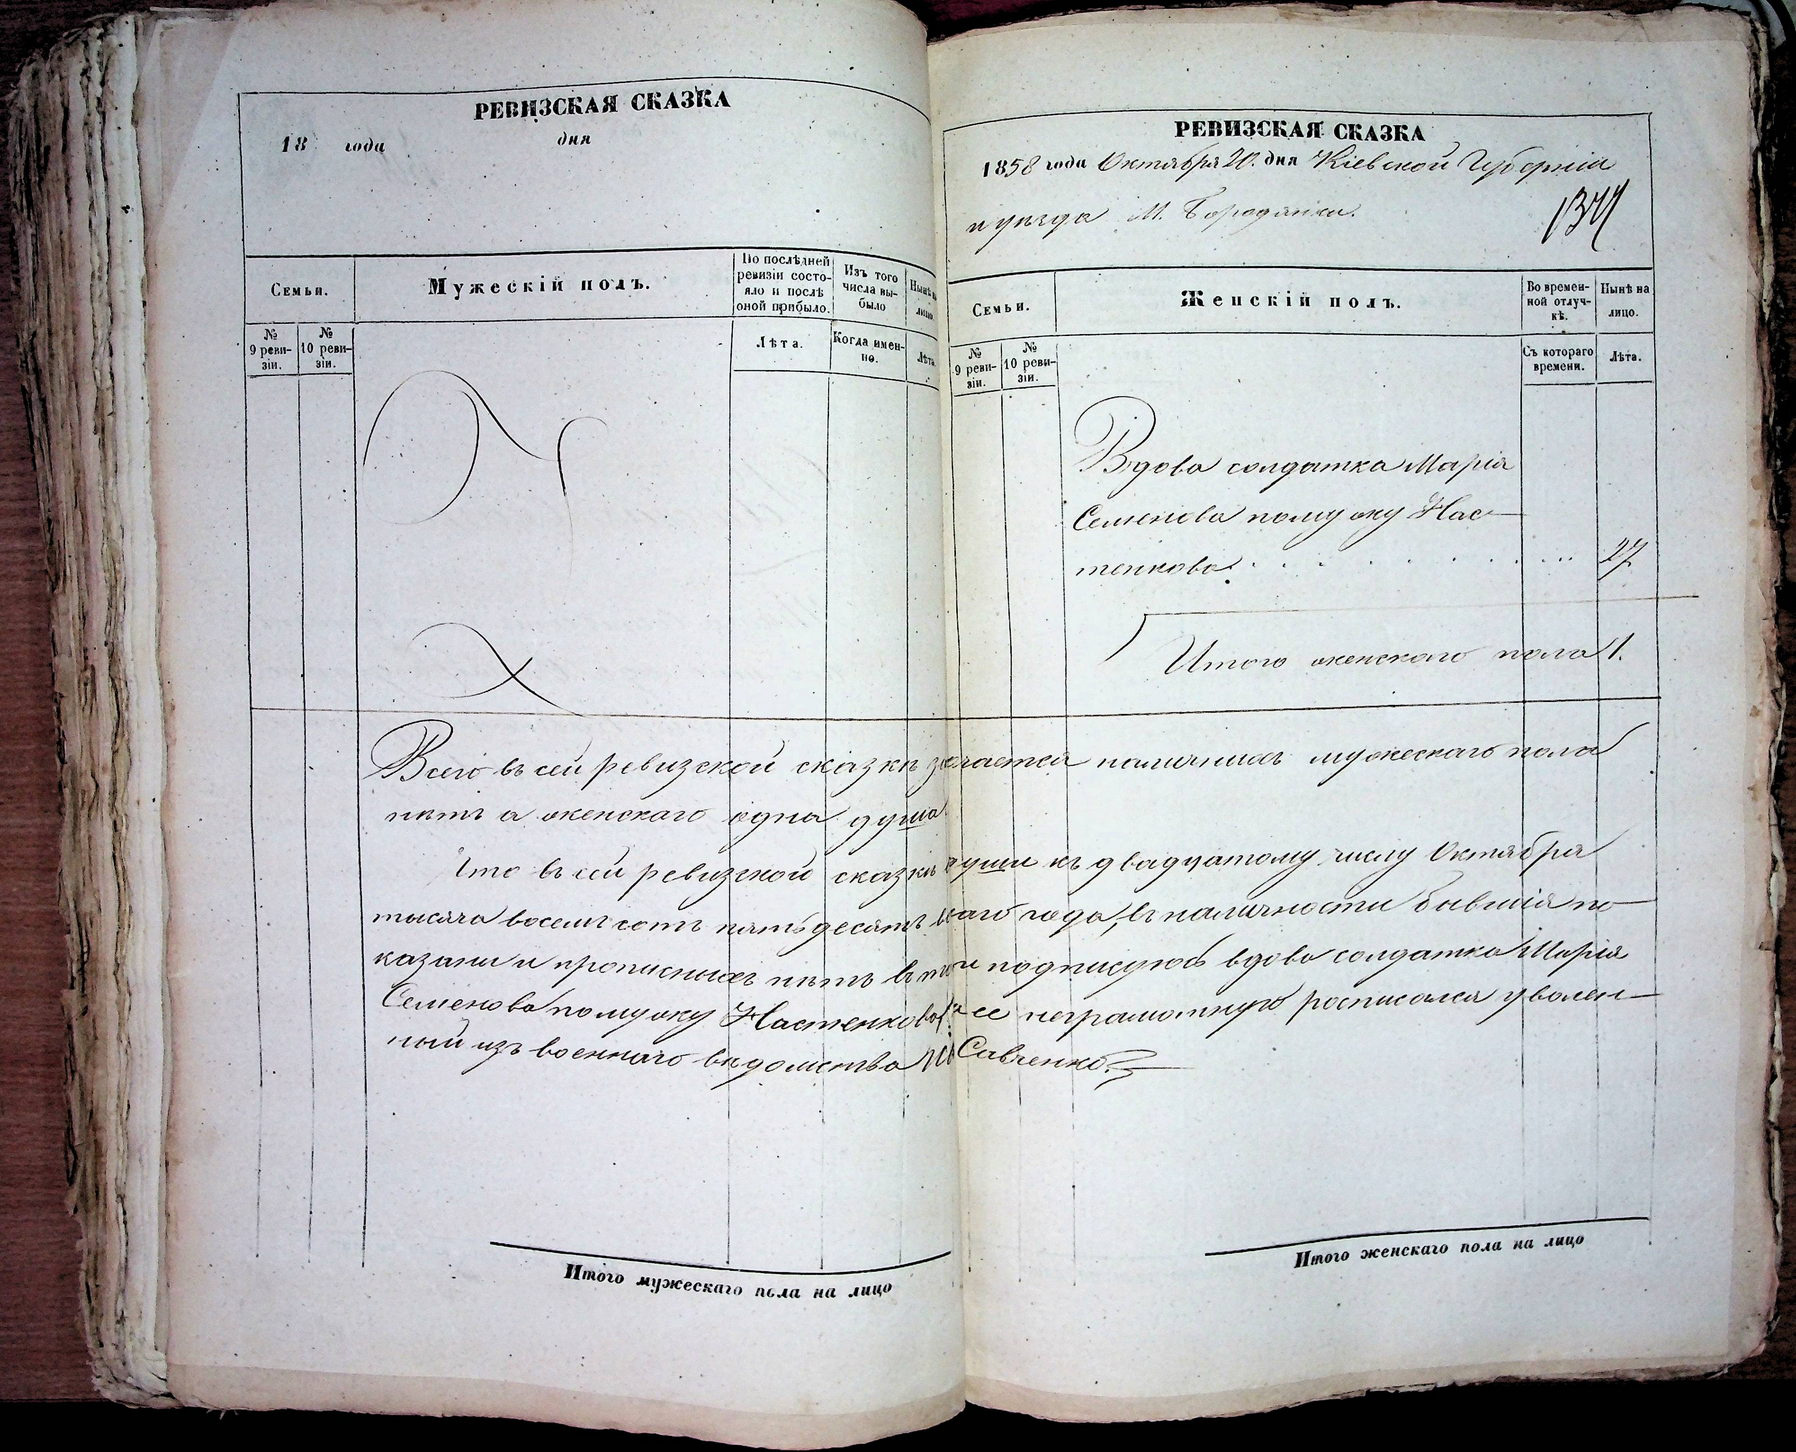 РЕВИЗСКАЯ СКАЗКА
18 года дня
Семьи.
Мужескій полъ.
По послѣдней
ревизіи состо-
яло и послѣ
оной прибыло.
Изъ того
числа вы-
было
Нынѣ на
лицо.
№
9 реви-
зіи.
№
10 реви-
зіи.
Лѣта.
Когда имен-
но.
Лѣта.
РЕВИЗСКАЯ СКАЗКА
1858 года Октября 20. дня Кіевской Губерніи
и уѣзда М. Бородянки.
Семьи.
Женскій полъ.
Во времен-
ной отлуч-
кѣ.
Нынѣ на
лицо.
№
9 реви-
зіи.
№
10 реви-
зіи.
Съ котораго
времени.
Лѣта.
Вдова солдатка Марія
Семенова по мужу Нас-
тенкова 27
Итого женскаго пола 1.
Всего въ сей ревизской сказкѣ наличныхъ мужескаго пола
нѣтъ а женскаго одна душа
Что въ сей ревизской сказкѣ души къ двадцатому числу Октября
тысяча восемь сотъ пятьдесятъ года, въ наличности бывшія по-
казаны и прописныхъ нѣтъ въ томъ подписуюсь вдова солдатка Марія
Семенова по мужу Настенкова ее неграмотную росписался уволен-
ный изъ военнаго вѣдомства Савченко.
Итого мужескаго пола на лицо
Итого женскаго пола на лицо